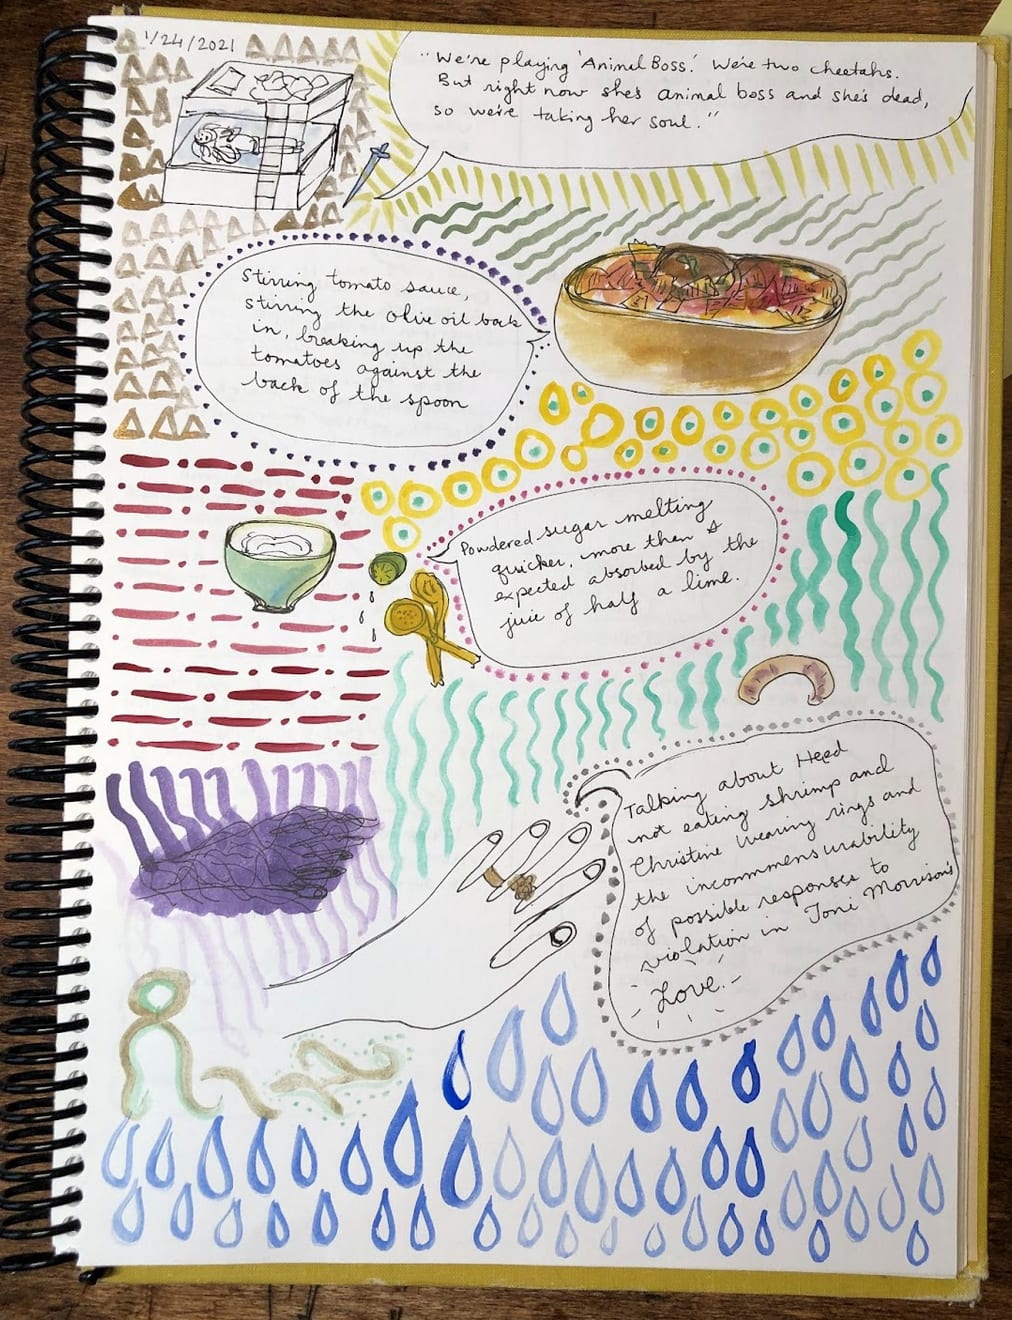 1/24/2021
"We're playing 'Animal Boss.' We're two cheetahs.
But right now she's animal boss and she's dead,
so we're taking her soul."
Stirring tomato sauce,
stirring the olive oil back
in, breaking up the
tomatoes against the
back of the spoon
Powdered sugar melting
quicker, more than is
expected absorbed by the
juice of half a lime.
Talking about Heed
not eating shrimp and
Christine wearing rings and
the incommensurability
of possible responses to
violation in Toni Morrison's
Love.